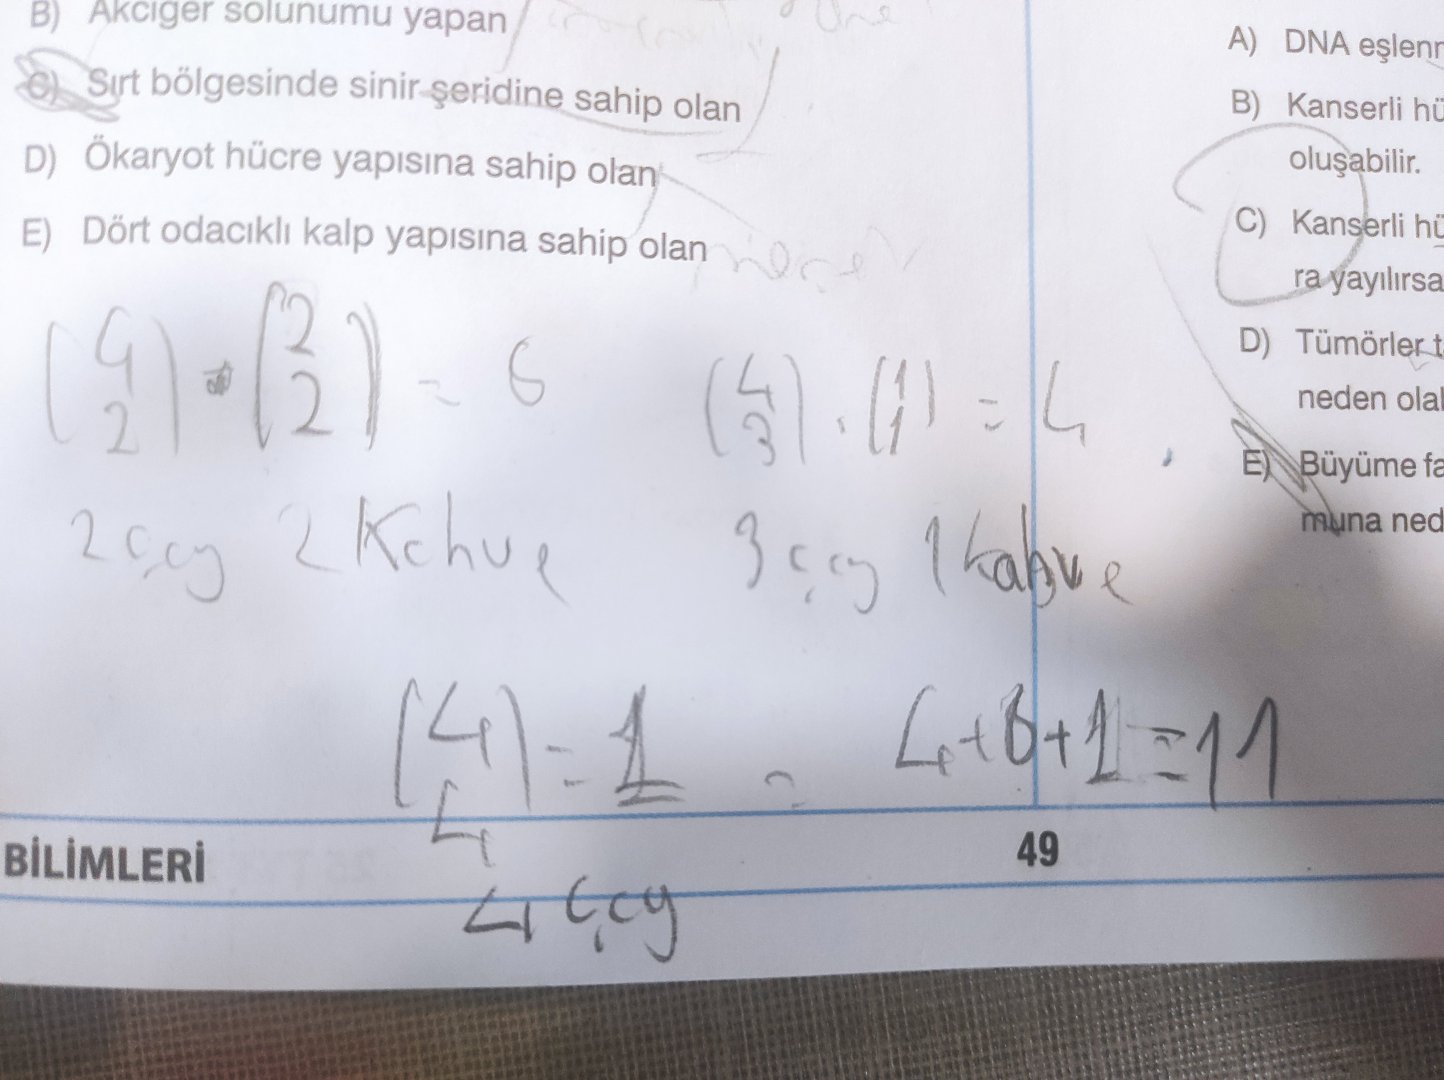 B) Akciğer solunumu yapan
C) Sırt bölgesinde sinir şeridine sahip olan
D) Ökaryot hücre yapısına sahip olan
E) Dört odacıklı kalp yapısına sahip olan
(4 2) · (2 2) = 6
2 çay 2 Kahve
(4 3) · (1 1) = 4
3 çay 1 kahve
(4 4) = 1
4 çay
4+6+1=11
A) DNA eşlenr
B) Kanserli hü
oluşabilir.
C) Kanserli hü
ra yayılırsa
D) Tümörler t
neden olal
E) Büyüme fa
muna ned
BİLİMLERİ
49